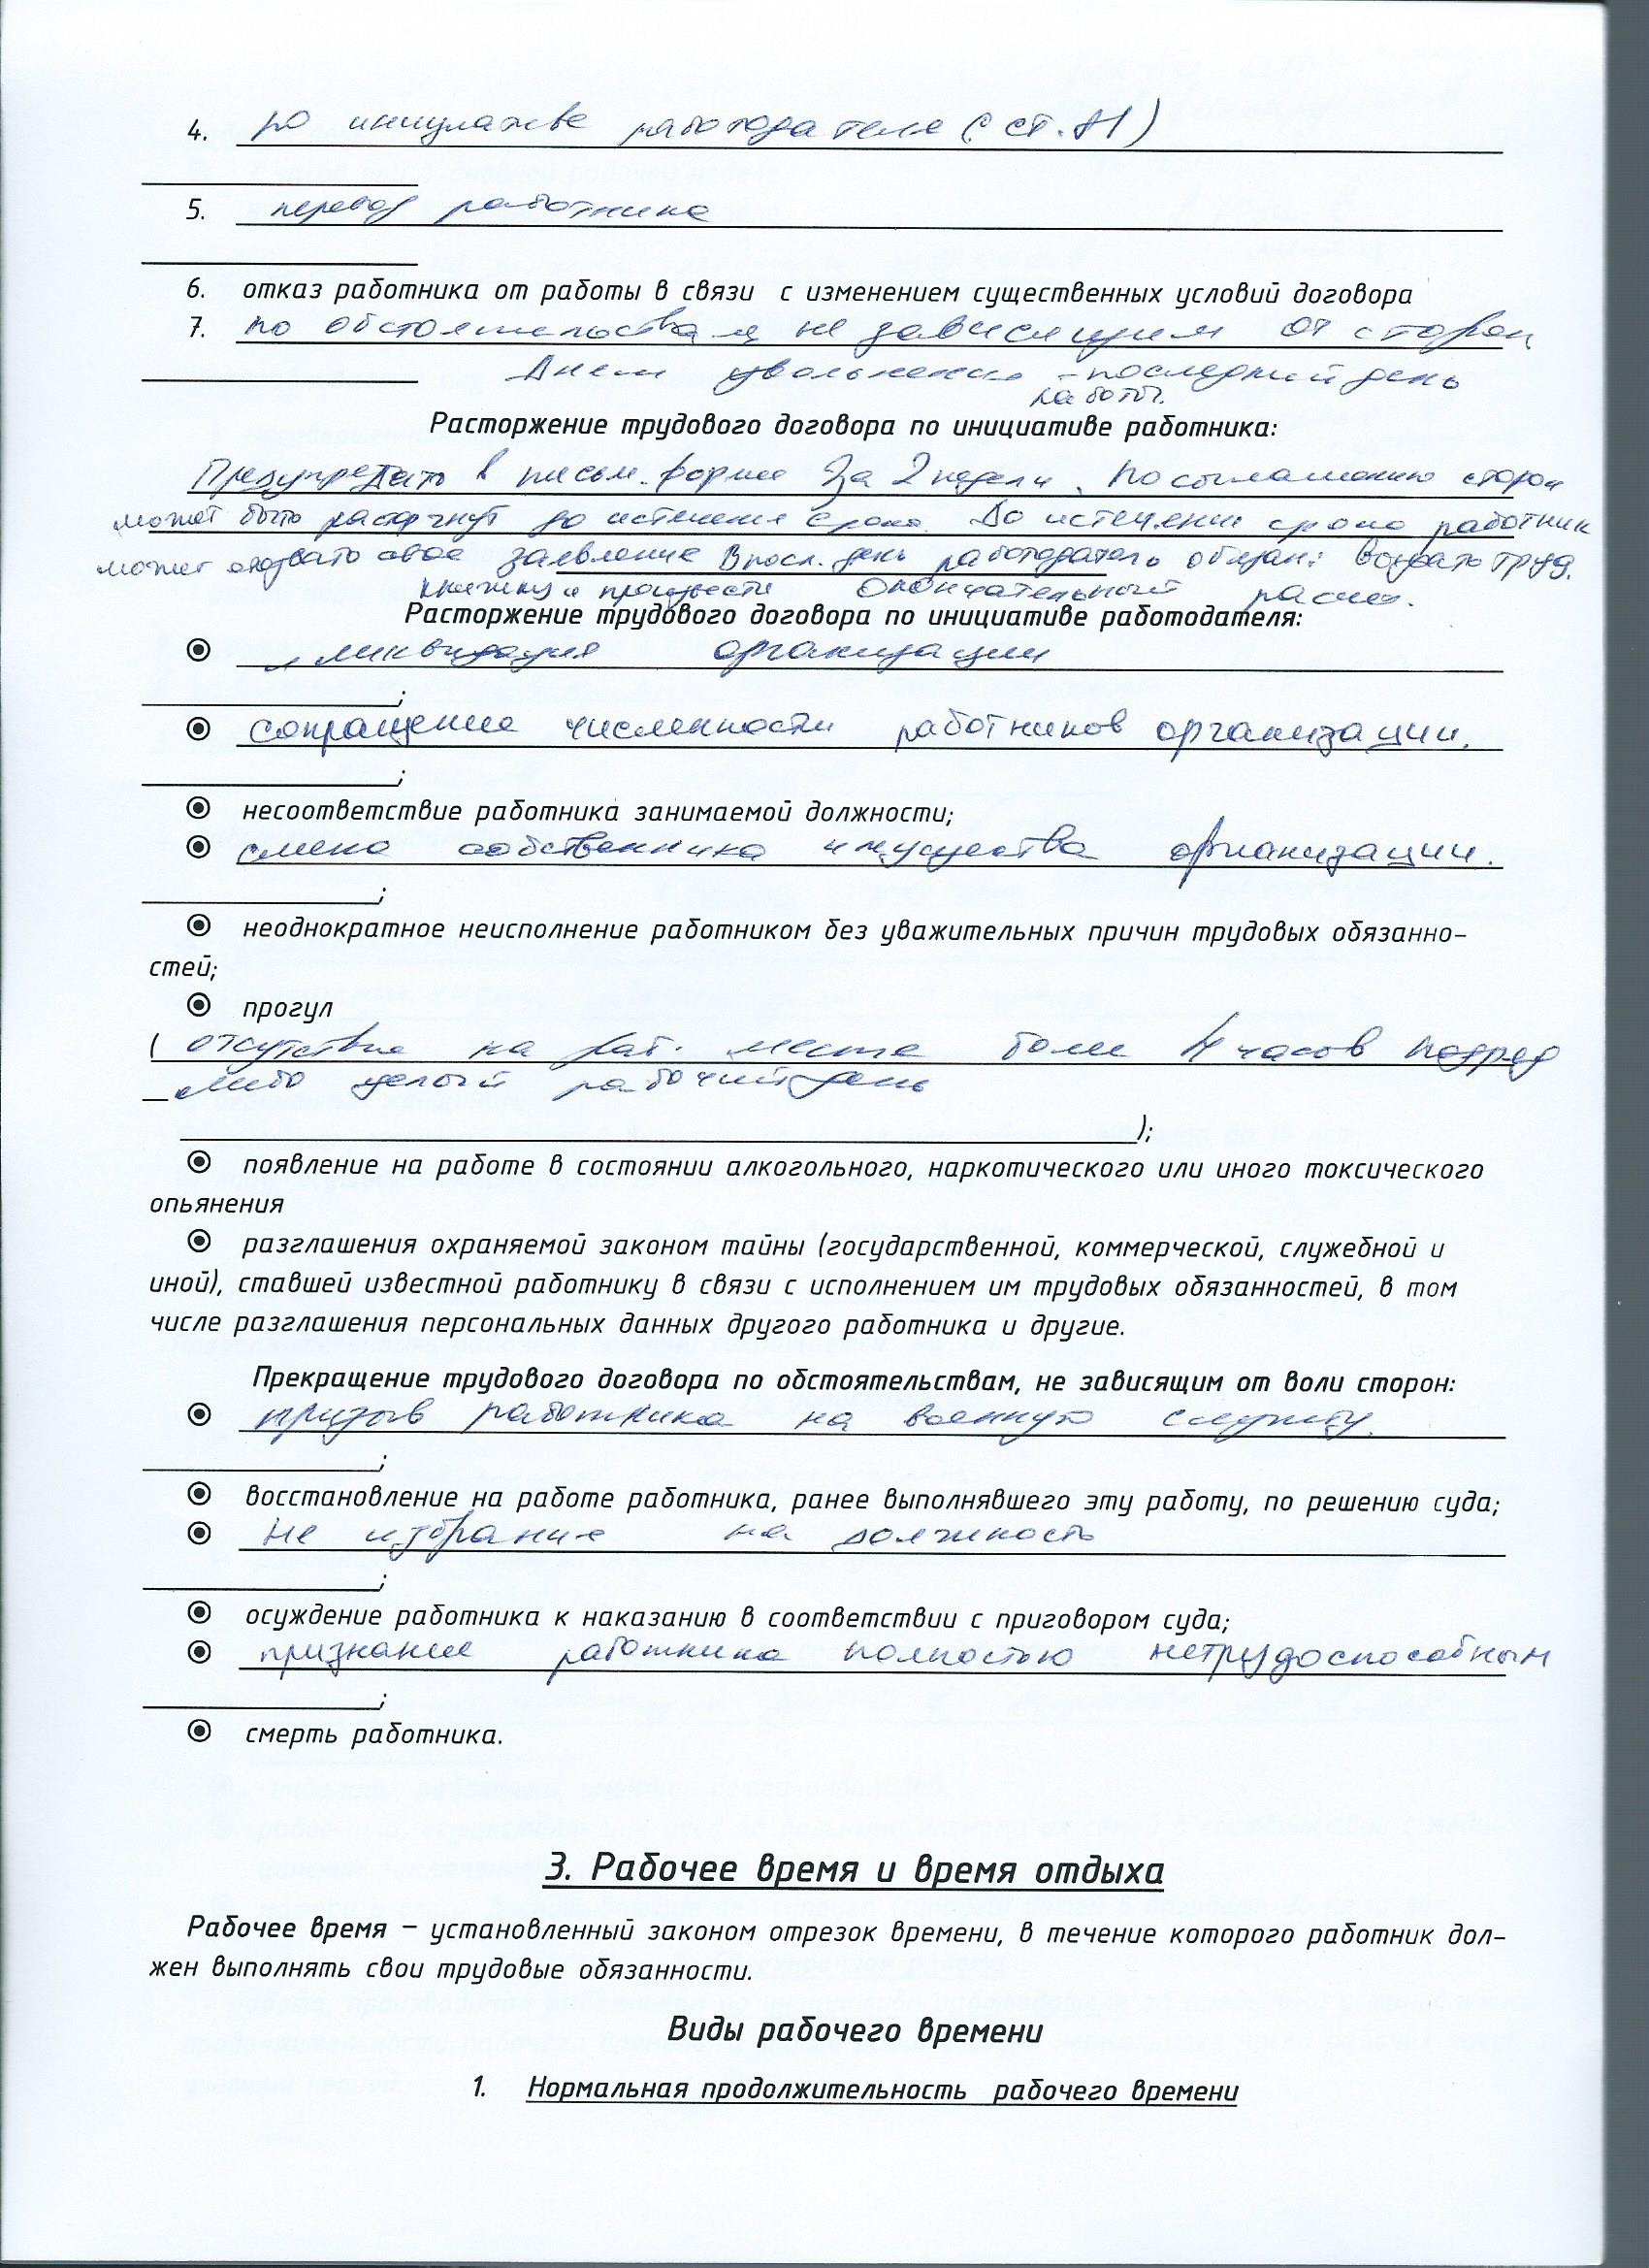 4. по инициативе работодателя (ст. 81)
5. перевод работника
6. отказ работника от работы в связи с изменением существенных условий договора
7. по обстоятельствам не зависящим от сторон
Днем увольнения - последний день
работы.
Расторжение трудового договора по инициативе работника:
Предупредить в письм. форме за 2 недели. По соглашению сторон
может быть расторгнут до истечения срока. До истечении срока работник
может отозвать свое заявление В посл. день работодатель обязан: выдать труд.
книжку и произвести окончательный расчет.
Расторжение трудового договора по инициативе работодателя:
ликвидация организации
;
сокращение численности работников организации.
;
несоответствие работника занимаемой должности;
смена собственника имущества организации.
;
неоднократное неисполнение работником без уважительных причин трудовых обязанно-
стей;
прогул
( отсутствие на раб. месте более 4 часов подряд
либо целый рабочий день
);
появление на работе в состоянии алкогольного, наркотического или иного токсического
опьянения
разглашения охраняемой законом тайны (государственной, коммерческой, служебной и
иной), ставшей известной работнику в связи с исполнением им трудовых обязанностей, в том
числе разглашения персональных данных другого работника и другие.
Прекращение трудового договора по обстоятельствам, не зависящим от воли сторон:
призыв работника на военную службу.
;
восстановление на работе работника, ранее выполнявшего эту работу, по решению суда;
не избрание на должность
;
осуждение работника к наказанию в соответствии с приговором суда;
признание работника полностью нетрудоспособным
;
смерть работника.
3. Рабочее время и время отдыха
Рабочее время – установленный законом отрезок времени, в течение которого работник дол-
жен выполнять свои трудовые обязанности.
Виды рабочего времени
1. Нормальная продолжительность рабочего времени